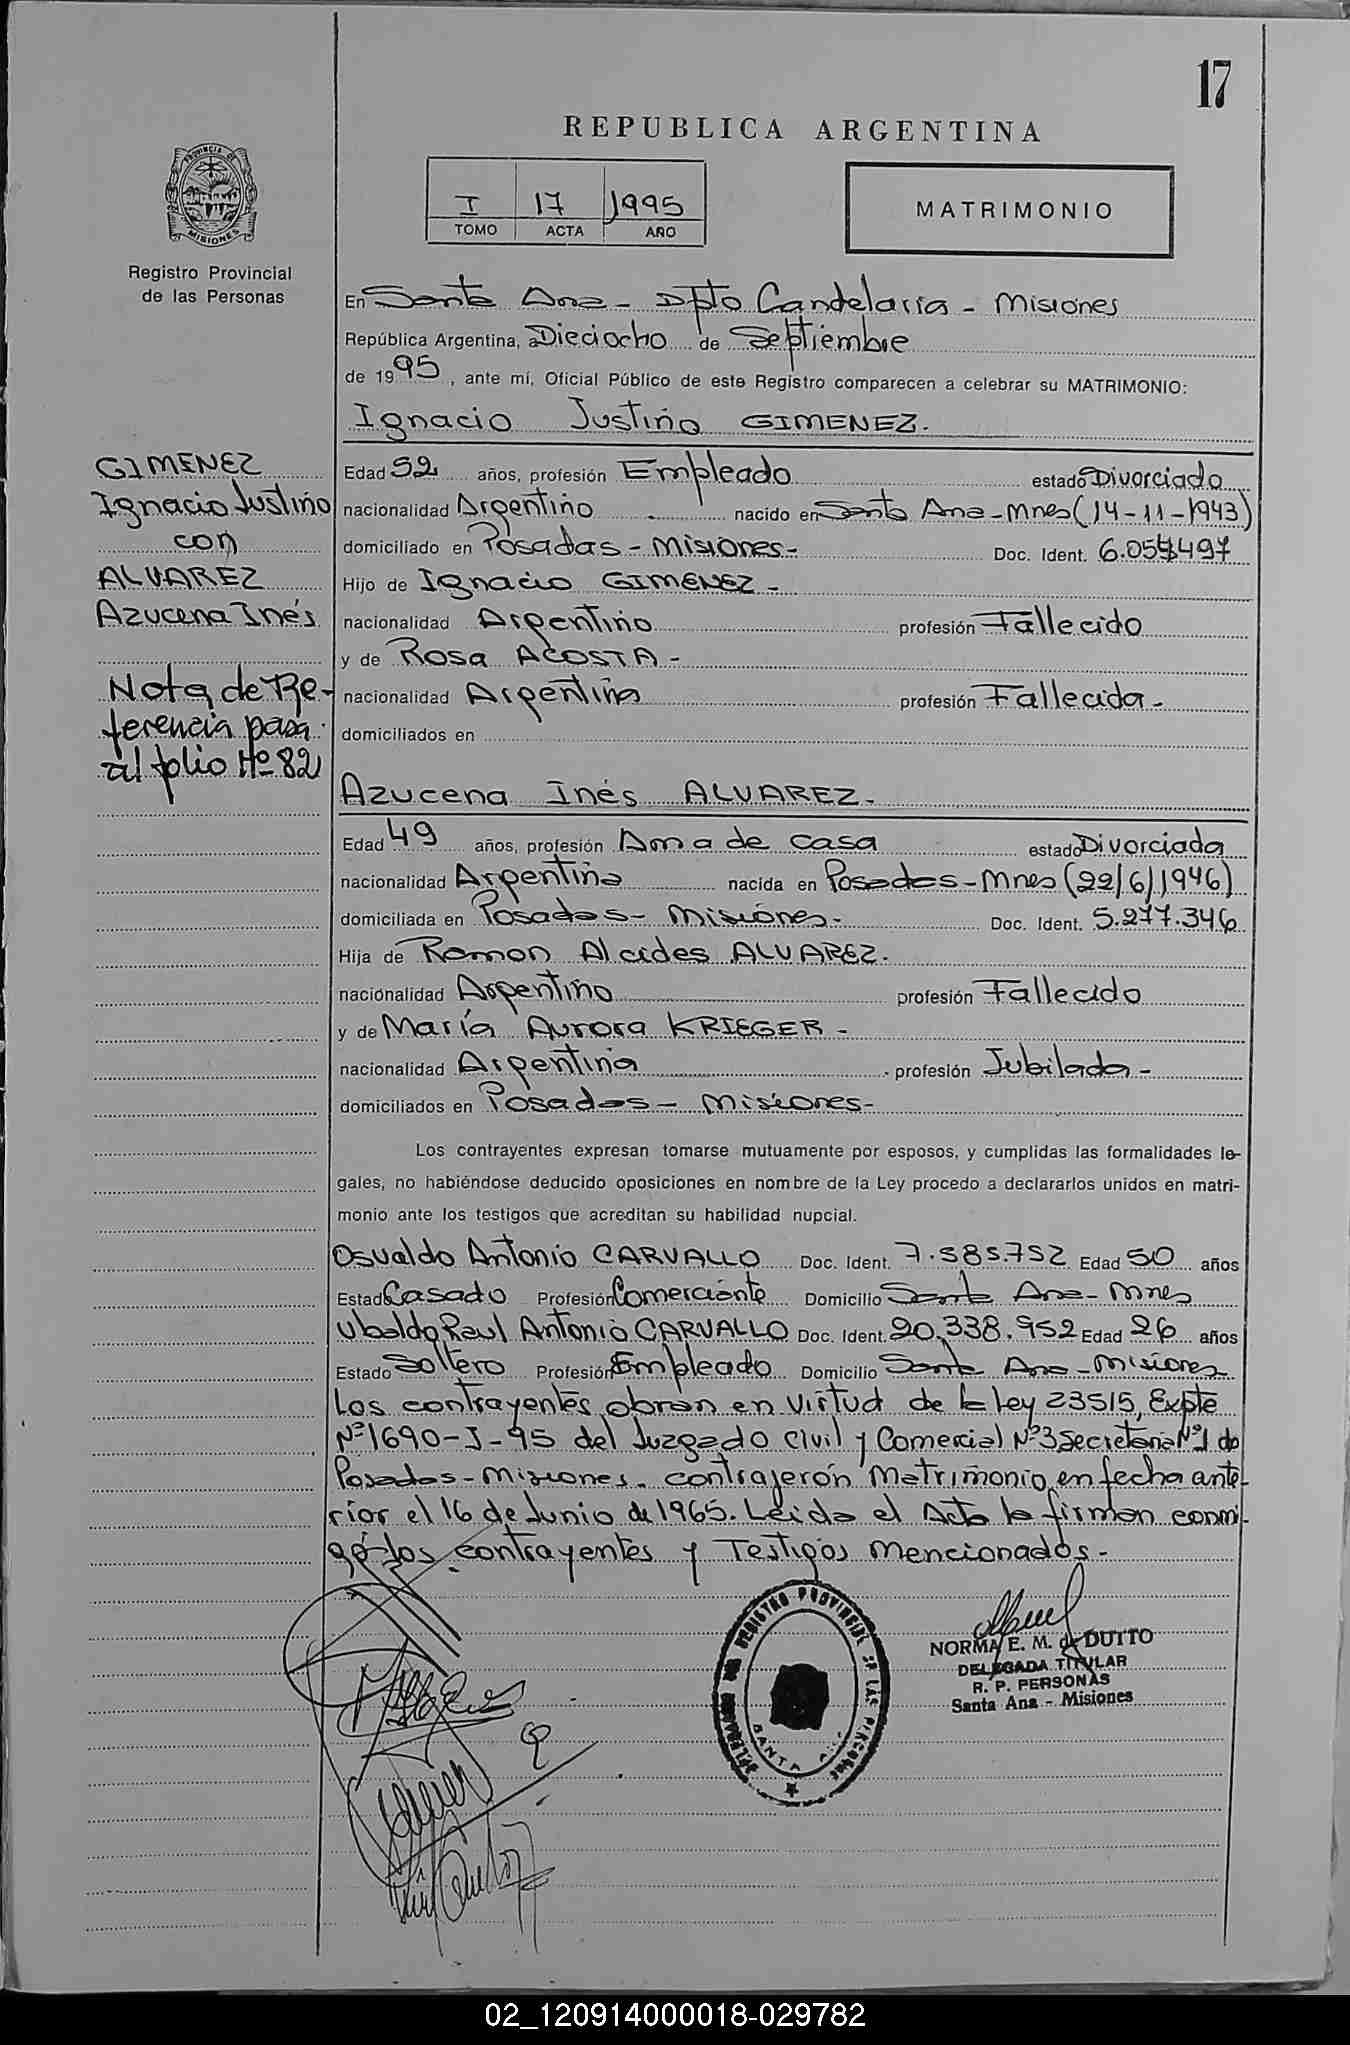 17
REPUBLICA ARGENTINA
I 17 1995
TOMO ACTA AÑO
MATRIMONIO
PROVINCIA DE MISIONES
Registro Provincial
de las Personas
GIMENEZ
Ignacio Justino
con
ALVAREZ
Azucena Inés
Nota de Re-
ferencia pasa
al folio Nº 82
En Santa Ana - Dpto Candelaria - Misiones
República Argentina, a Dieciocho de Septiembre
de 1995, ante mí, Oficial Público de este Registro comparecen a celebrar su MATRIMONIO:
Ignacio Justino GIMENEZ.
Edad 52 años, profesión Empleado estado Divorciado
nacionalidad Argentino nacido en Santa Ana - Mnes (14-11-1943)
domiciliado en Posadas - Misiones - Doc. Ident.
Hijo de Ignacio GIMENEZ -
nacionalidad Argentino profesión Fallecido
y de Rosa ACOSTA -
nacionalidad Argentina profesión Fallecida -
domiciliados en
Azucena Inés ALVAREZ -
Edad 49 años, profesión Ama de casa estado Divorciada
nacionalidad Argentina nacida en Posadas - Mnes (22/6/1946)
domiciliada en Posadas - Misiones - Doc. Ident. 5.277.346
Hija de Ramon Alcides ALVAREZ.
nacionalidad Argentino profesión Fallecido
y de María Aurora KRIEGER -
nacionalidad Argentina profesión Jubilada -
domiciliados en Posadas - Misiones -
Los contrayentes expresan tomarse mutuamente por esposos, y cumplidas las formalidades le-
gales, no habiéndose deducido oposiciones en nombre de la Ley procedo a declararlos unidos en matri-
monio ante los testigos que acreditan su habilidad nupcial.
Osvaldo Antonio CARVALLO Doc. Ident. 7.585.752 Edad 50 años
Estado Casado Profesión Comerciante Domicilio Santa Ana - Mnes
Ubaldo Raul Antonio CARVALLO Doc. Ident. 20.338.952 Edad 26 años
Estado Soltero Profesión Empleado Domicilio Santa Ana - Misiones
Los contrayentes obran en virtud de la Ley 23515, Expte
Nº 1690-J-95 del Juzgado Civil y Comercial Nº 3 Secretaria Nº 1 de
Posadas - Misiones. contrajeron Matrimonio en fecha ante-
rior el 16 de Junio de 1965. Leida el Acta la firman conmi-
go los contrayentes y Testigos mencionados -
REGISTRO PROVINCIAL DE LAS PERSONAS
SANTA
NORMA E. M. de DUTTO
DELEGADA TITULAR
R. P. PERSONAS
Santa Ana - Misiones
02_120914000018-029782